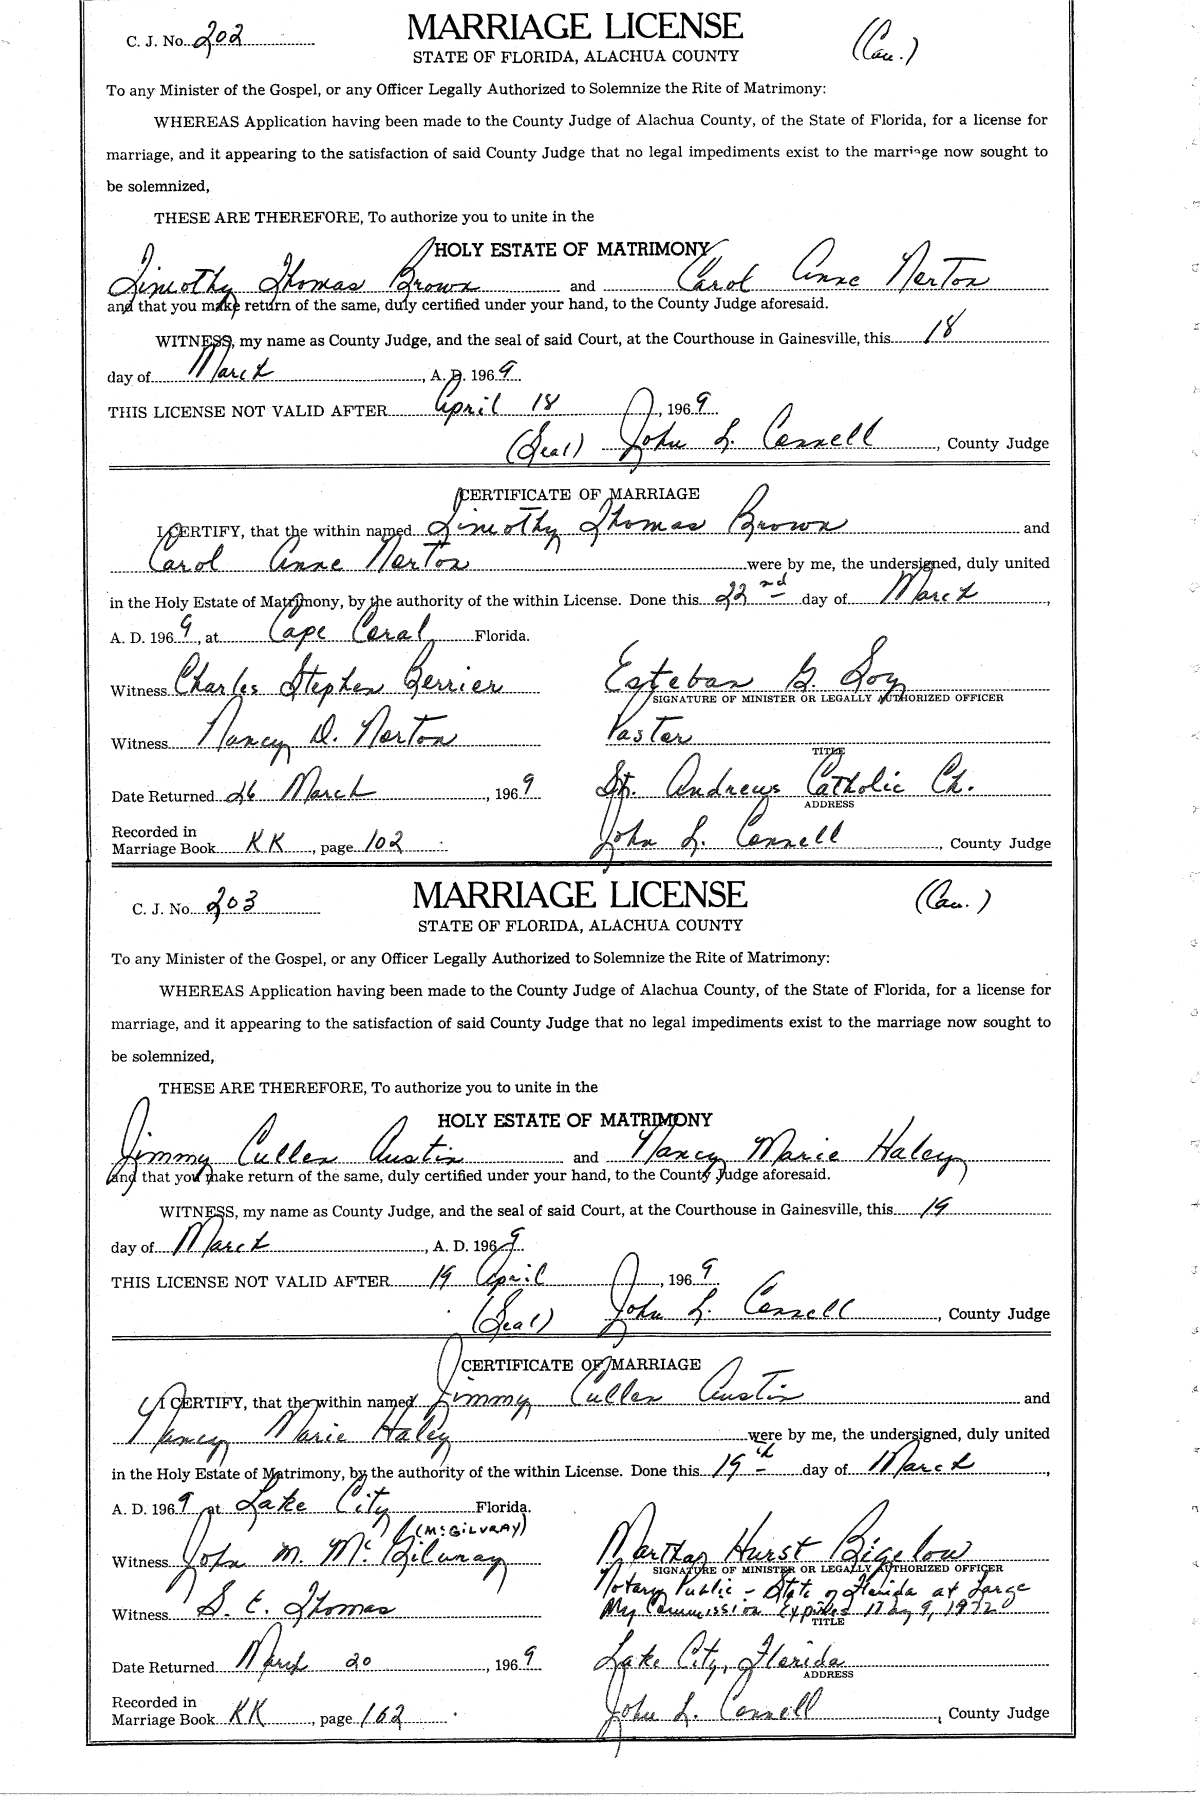 C. J. No. 202 MARRIAGE LICENSE (Cau.)
STATE OF FLORIDA, ALACHUA COUNTY
To any Minister of the Gospel, or any Officer Legally Authorized to Solemnize the Rite of Matrimony:
WHEREAS Application having been made to the County Judge of Alachua County, of the State of Florida, for a license for
marriage, and it appearing to the satisfaction of said County Judge that no legal impediments exist to the marriage now sought to
be solemnized,
THESE ARE THEREFORE, To authorize you to unite in the
HOLY ESTATE OF MATRIMONY
Timothy Thomas Brown and Carol Anne Norton
and that you make return of the same, duly certified under your hand, to the County Judge aforesaid.
WITNESS, my name as County Judge, and the seal of said Court, at the Courthouse in Gainesville, this 18
day of March, A. D. 1969
THIS LICENSE NOT VALID AFTER April 18, 1969
(Seal) John L. Connell, County Judge
CERTIFICATE OF MARRIAGE
I CERTIFY, that the within named Timothy Thomas Brown and
Carol Anne Norton were by me, the undersigned, duly united
in the Holy Estate of Matrimony, by the authority of the within License. Done this 22nd day of March,
A. D. 1969, at Cape Coral Florida.
Witness Charles Stephen Berrier Esteban G. Soy
SIGNATURE OF MINISTER OR LEGALLY AUTHORIZED OFFICER
Witness Nancy D. Norton Pastor
TITLE
Date Returned 26 March, 1969 St. Andrews Catholic Ch.
ADDRESS
Recorded in
Marriage Book KK, page 102 John L. Connell, County Judge
C. J. No. 203 MARRIAGE LICENSE (Cau.)
STATE OF FLORIDA, ALACHUA COUNTY
To any Minister of the Gospel, or any Officer Legally Authorized to Solemnize the Rite of Matrimony:
WHEREAS Application having been made to the County Judge of Alachua County, of the State of Florida, for a license for
marriage, and it appearing to the satisfaction of said County Judge that no legal impediments exist to the marriage now sought to
be solemnized,
THESE ARE THEREFORE, To authorize you to unite in the
HOLY ESTATE OF MATRIMONY
Jimmy Cullen Austin and Nancy Marie Haley
and that you make return of the same, duly certified under your hand, to the County Judge aforesaid.
WITNESS, my name as County Judge, and the seal of said Court, at the Courthouse in Gainesville, this 19
day of March, A. D. 1969
THIS LICENSE NOT VALID AFTER 19 April, 1969
(Seal) John L. Connell, County Judge
CERTIFICATE OF MARRIAGE
I CERTIFY, that the within named Jimmy Cullen Austin and
Nancy Marie Haley were by me, the undersigned, duly united
in the Holy Estate of Matrimony, by the authority of the within License. Done this 19th day of March,
A. D. 1969 at Lake City Florida.
(McGILVRAY)
Witness John M. McGilvray Martha Hurst Bigelow
SIGNATURE OF MINISTER OR LEGALLY AUTHORIZED OFFICER
Notary Public - State of Florida at Large
Witness S. E. Thomas My Commission Expires May 9, 1972
TITLE
Date Returned March 20, 1969 Lake City, Florida
ADDRESS
Recorded in
Marriage Book KK, page 102 John L. Connell, County Judge